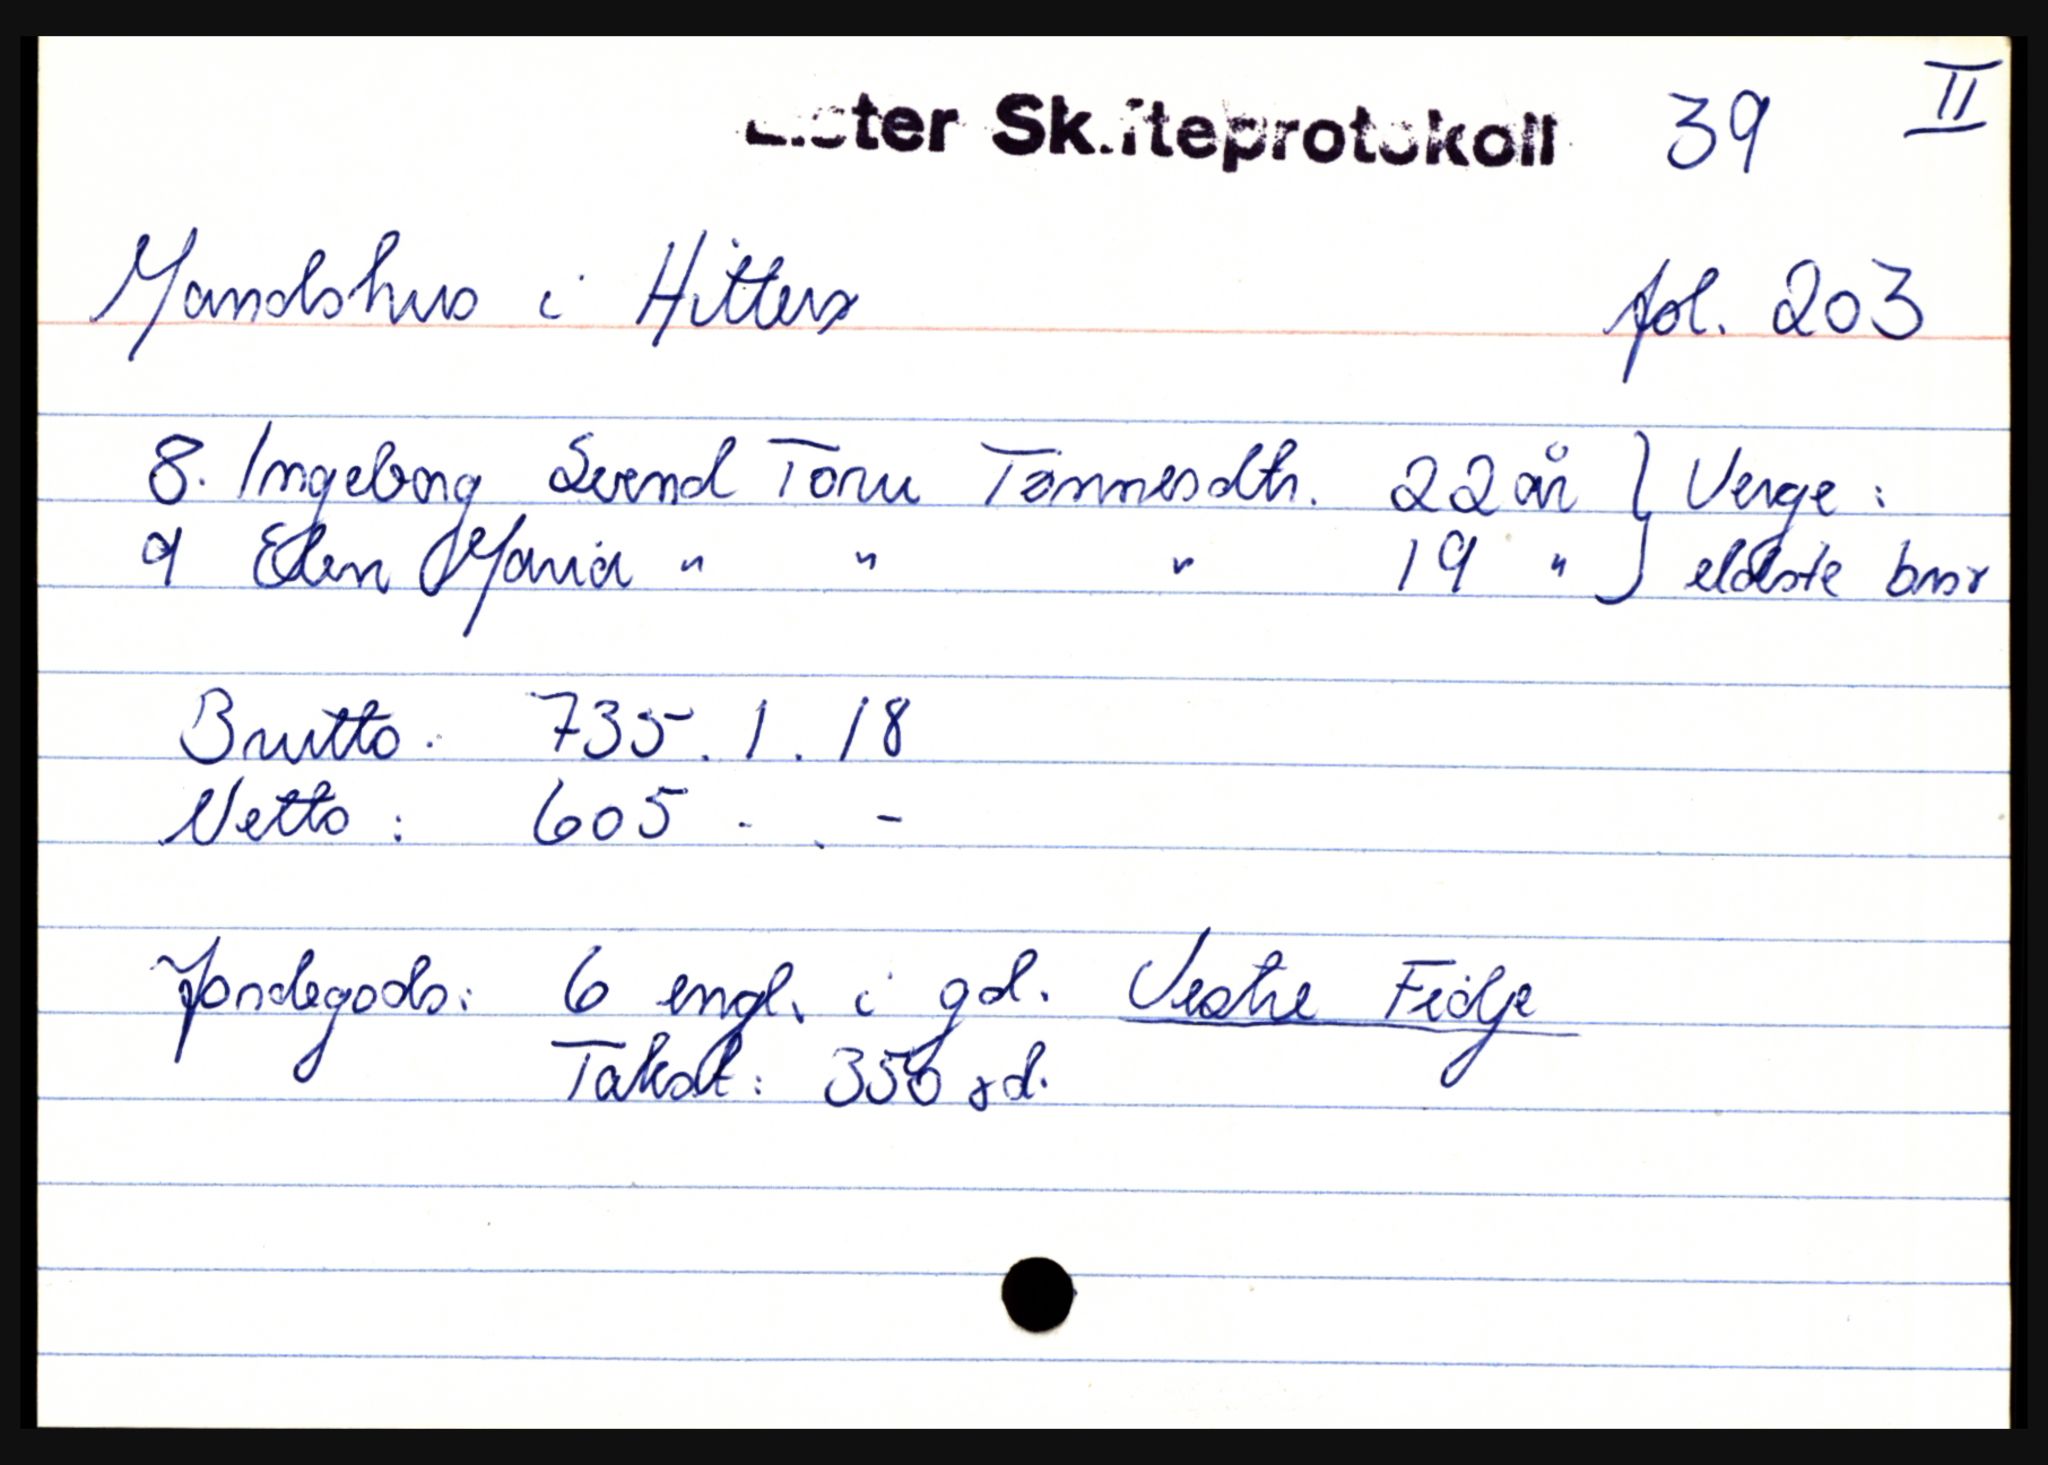 Lister Skifteprotokoll 39 II
Mandshus i Hitterø fol. 203
8. Ingeborg Svend Toru Tønnesdtr. 22 år } Verge:
9 Elen Maria " " " 19 " } eldste bror
Brutto: 735. 1. 18
Netto: 605 . . -
Jordegods: 6 engl. i gd. Vestre Fidje
Takst: 356 rd.